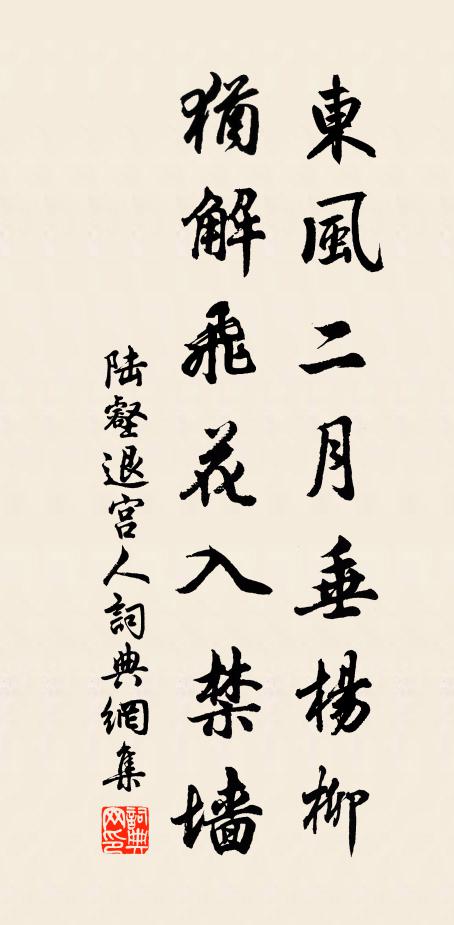 東風二月垂楊柳
猶解飛花入禁墻
陆壑退宫人詞典網集
詞典网印